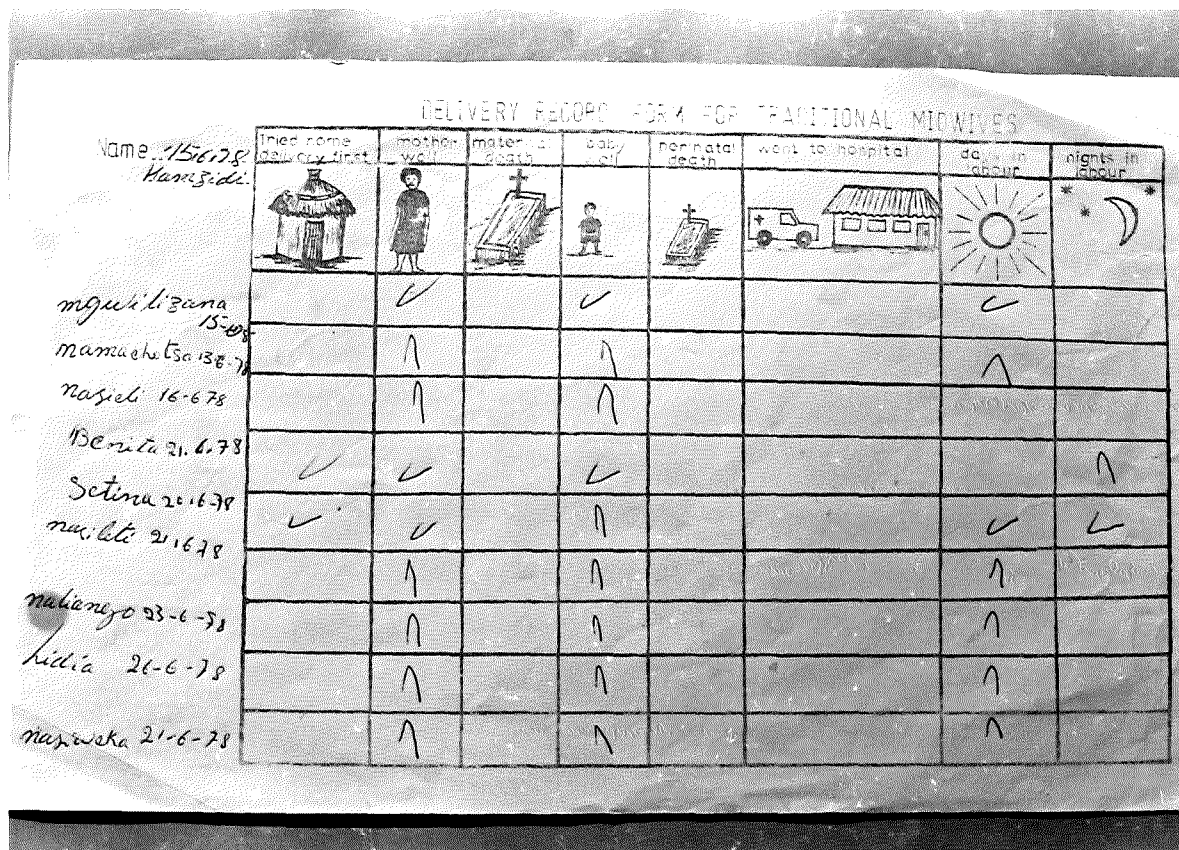 DELIVERY RECORD FORM FOR TRADITIONAL MIDWIVES
Name 15.6.78
Hamzidi.
Tried home delivery first
mother well
maternal death
baby well
perinatal death
went to hospital
days in labour
nights in labour
mguilizana
mamachetsa 13.6.78
nazieli 16-6 78
Benita 21.6.78
Setina 20.6-78
naziliti 21.6 78
malianezo 23-6-78
Lidia 26-6-78
21-6-78